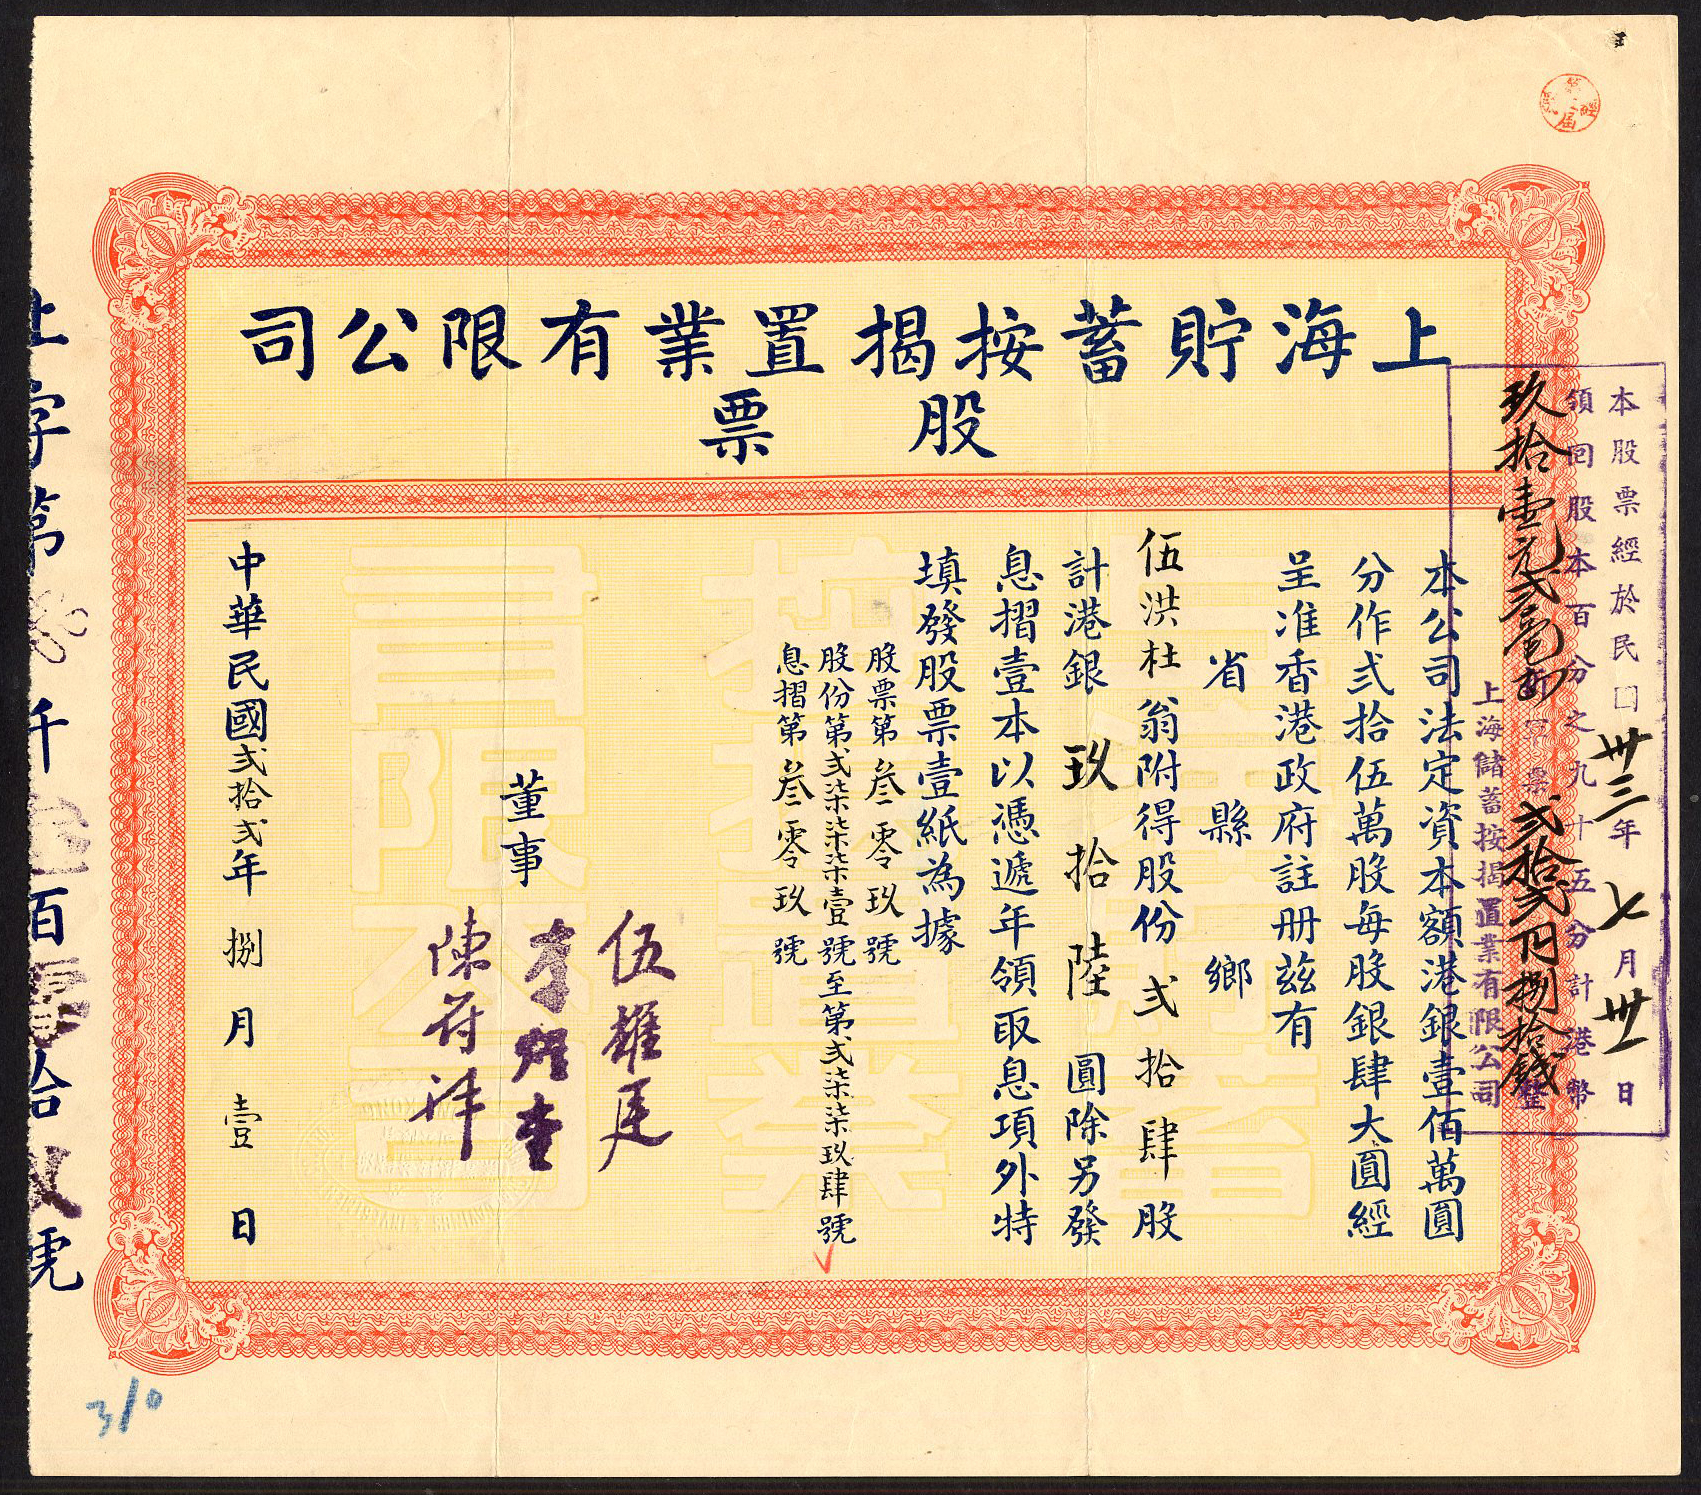 上海貯蓄按揭置業有限公司
股票
本股票經於民囗卅三年七月卅一日
領回股本百分之九十五分計港幣
玖拾壹元弍毫
軍票弍拾弍円捌拾錢
整
上海儲蓄按揭置業有限公司
本公司法定資本額港銀壹佰萬圓
分作弍拾伍萬股每股銀肆大圓經
呈准香港政府註冊茲有
省縣鄉
伍洪杜翁附得股份弍拾肆股
計港銀玖拾陸圓除另發
息摺壹本以憑遞年領取息項外特
填發股票壹紙為據
股票第叁零玖號
股份第弍柒柒柒壹號至第弍柒柒玖肆號
息摺第叁零玖號
董事
伍耀廷
李煜堂
陳符祥
中華民國弍拾弍年捌月壹日
上字第零仟叁百零拾玖號
310